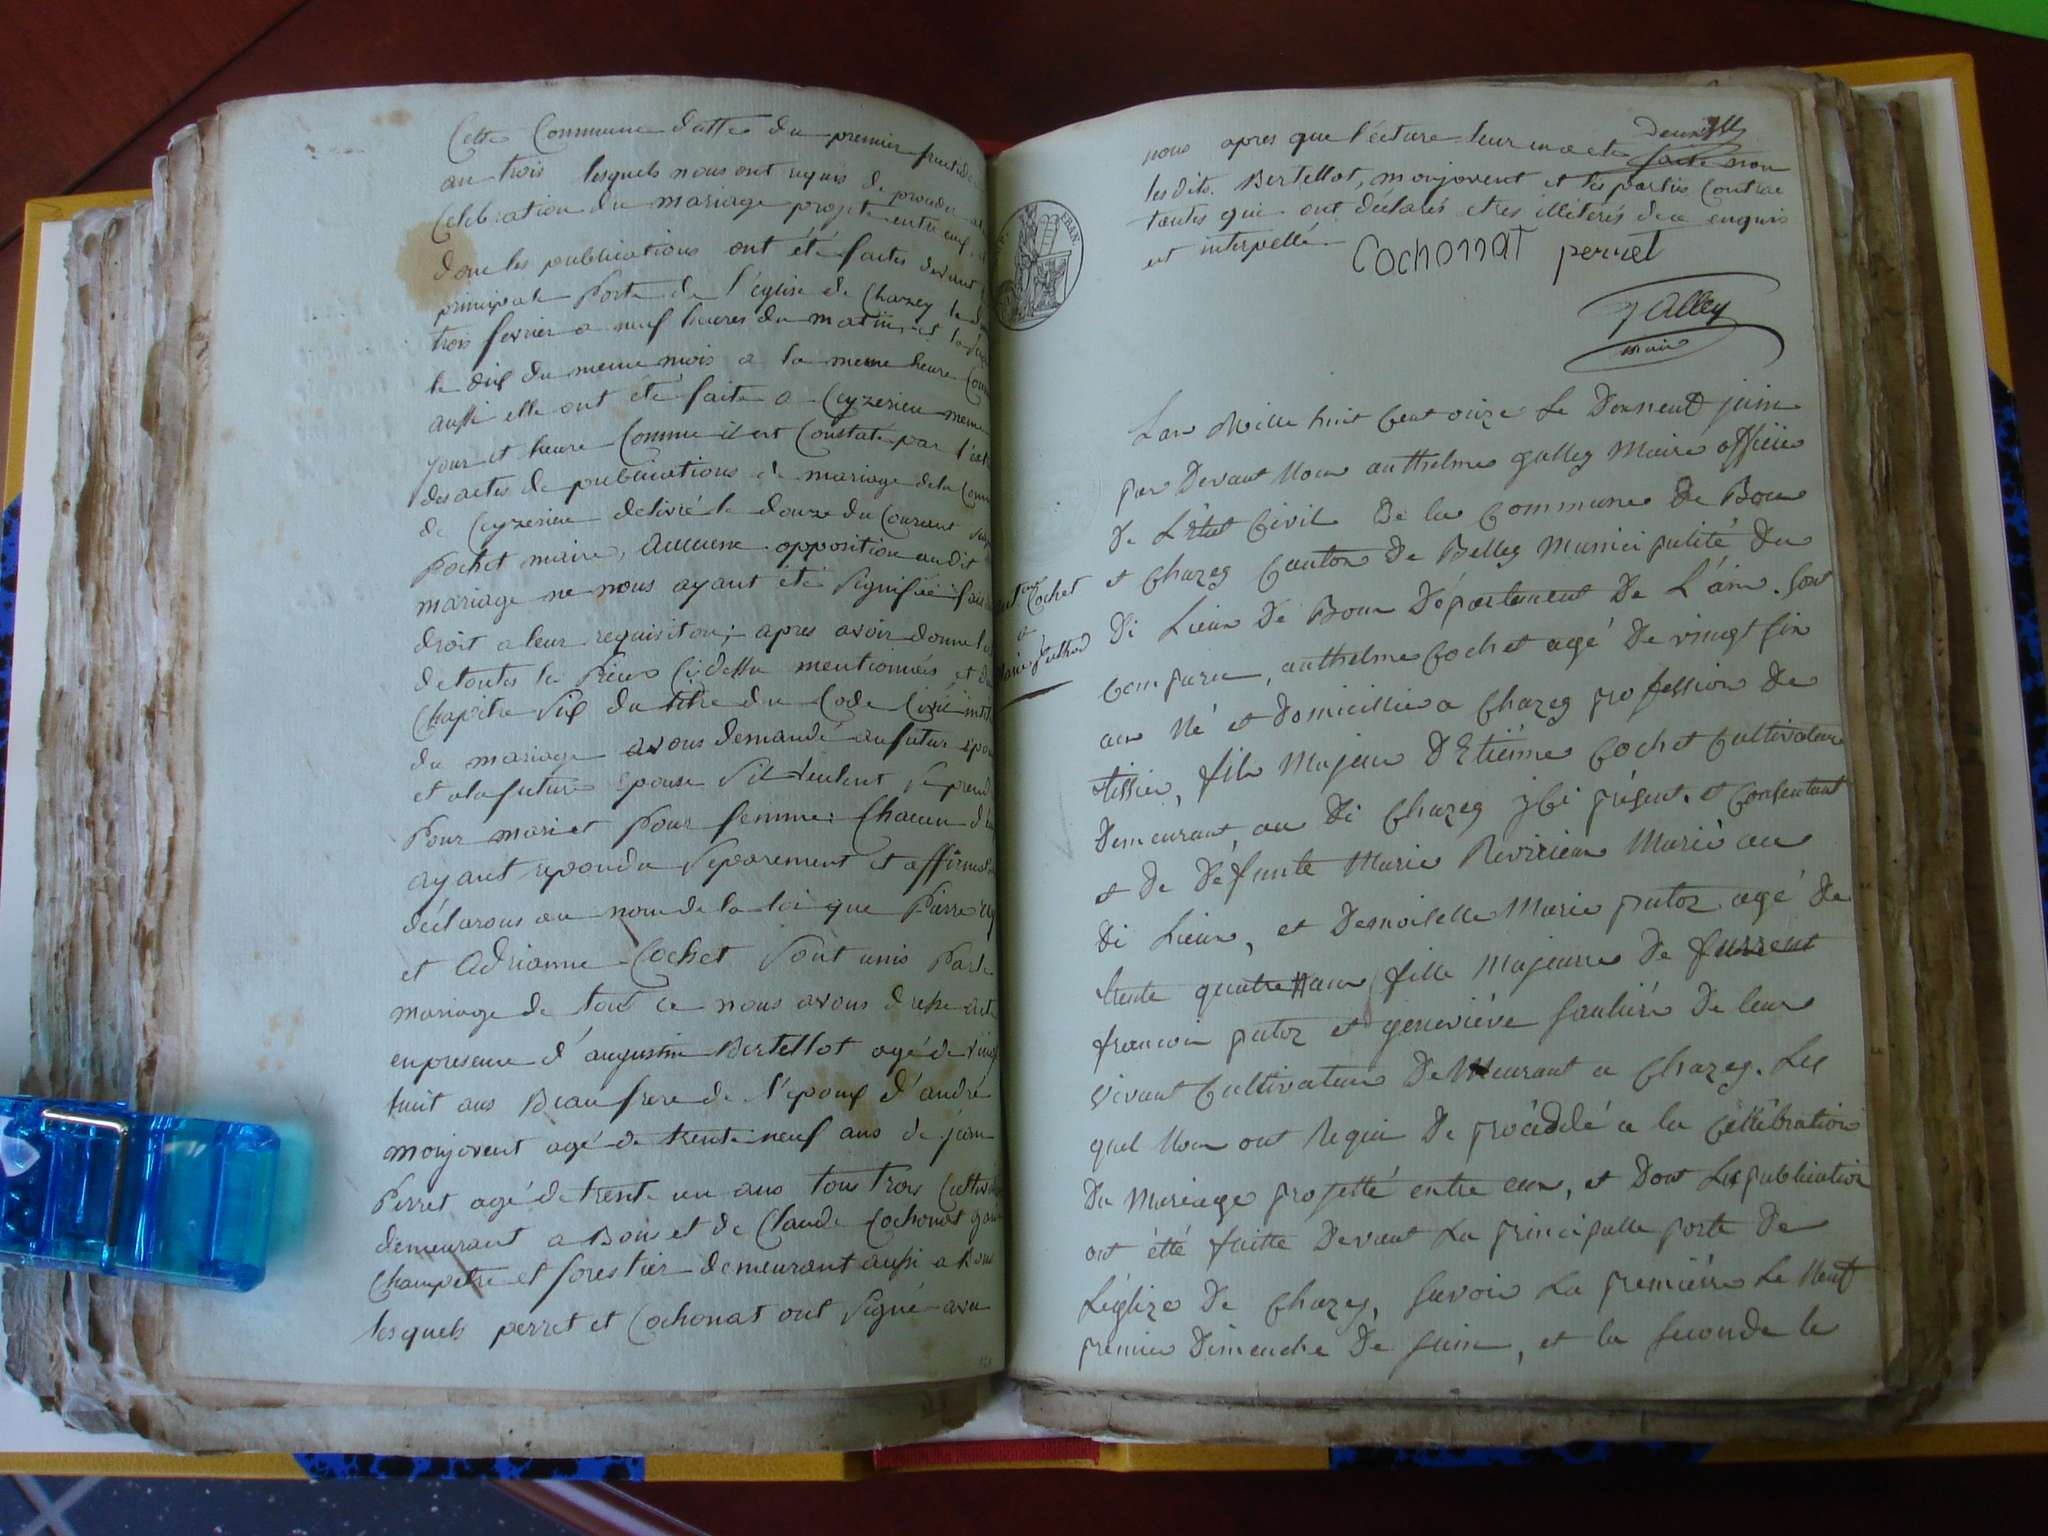 Cette Commune datte du premier fructido
an trois lesquels nous ont requis de proceder a
Celebration du mariage projeté entre eux,
dont les publications ont été faites devant
principale Porte de l'église de Chazey le
trois fevrier a neuf heures du matin, et la
le dix du meme mois a la meme heure Com
aussi elle ont été faite a Ceyzerieu meme
jour et heure Comme il est Constaté par l'
des actes de publications de mariage de la Com
de Ceyzerieu delivré le douze du Courant
Pochet maire, aucune opposition audit
mariage ne nous ayant été signifiée
droit a leur requisiton; apres avoir donné l
de toutes les Pieces Cidessu mentionnées, et d
Chapitre Six du titre du Code Civil intit
du mariage avons demandé au futur epou
et a la future Epouse s'il veulent se prend
Pour mari et Pour femme: Chacun d'
ayant repondu separement et affirmat
déclarons au nom de la loi que Pierre
et Adrianne Cochet sont unis Par le
mariage de tout ce nous avons dressé acte
en presence d'augustin Bertellot agé de vingt
huit ans Beau frere de l'epoux d'andré
monjovent agé de trente neuf ans de jean
Perret agé de trente un ans tous trois Cultiv
demeurant a Bons et de Claude Cochonat gar
Champetre et forestier demeurant aussi a Bons
lesquels perret et Cochonat ont signé avec
nous apres que lécture leur en a ete faite non
les dits. Bertellot, monjovent et les parties Contrac
tantes qui ont déclarés etres illiterés de ce enquis
et interpellé.
Cochonnat perret
Galley
maire
Lan Mille huit Cent onze Le Dixneuf juin
par Devant Nous anthelme galley Maire officie
De L'état Civil De la Commune De Bon
Cochet
et
Marie
et Chazey Canton De Belley Municipalité Du
Di Lieux De Bons Département De L'ain. Sont
Comparu, anthelme Cochet agé De vingt six
an Né et Domicillié a Chazey profession De
tissier, fils Majeur D'Etienne Cochet Cultivateur
Demeurant au Di Chazey ici présent. et Consentant
et De Défunte Marie Revirieux Marié au
Di Lieux, et Demoiselle Marie putoz agé De
trente quatre ans fille Majeurre De furrent
françoi putoz et geneviéve Sauhiére De leur
vivant Cultivateur Demeurant a Chazey. Les
quel Nous ont Requi De procéddé a la Cellébration
Du Mariage projetté entre eux, et Dont Les publication
ont étté faitte Devant La principalle porte De
L'églize De Chazey, Savoir La premiérre Le Neuf
premier Dimenche De Juin, et la Seconde le